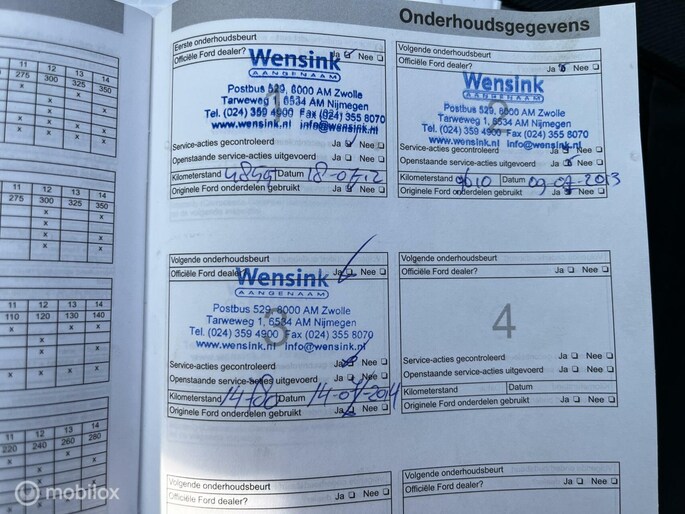 Onderhoudsgegevens
Eerste onderhoudsbeurt
Officiële Ford dealer? Ja Nee
Wensink
AANGENAAM
Postbus 529, 8000 AM Zwolle
Tarweweg 1, 6534 AM Nijmegen
Tel. (024) 359 4900 Fax (024) 355 8070
www.wensink.nl info@wensink.nl
1
Service-acties gecontroleerd Ja Nee
Openstaande service-acties uitgevoerd Ja Nee
Kilometerstand Datum
Originele Ford onderdelen gebruikt Ja Nee
Volgende onderhoudsbeurt
Officiële Ford dealer? Ja Nee
Wensink
AANGENAAM
Postbus 529, 8000 AM Zwolle
Tarweweg 1, 6534 AM Nijmegen
Tel. (024) 359 4900 Fax (024) 355 8070
www.wensink.nl info@wensink.nl
2
Service-acties gecontroleerd Ja Nee
Openstaande service-acties uitgevoerd Ja Nee
Kilometerstand 9610 Datum
Originele Ford onderdelen gebruikt Ja Nee
Volgende onderhoudsbeurt
Officiële Ford dealer? Ja Nee
Wensink
AANGENAAM
Postbus 529, 8000 AM Zwolle
Tarweweg 1, 6534 AM Nijmegen
Tel. (024) 359 4900 Fax (024) 355 8070
www.wensink.nl info@wensink.nl
3
Service-acties gecontroleerd Ja Nee
Openstaande service-acties uitgevoerd Ja Nee
Kilometerstand Datum
Originele Ford onderdelen gebruikt Ja Nee
Volgende onderhoudsbeurt
Officiële Ford dealer? Ja Nee
4
Service-acties gecontroleerd Ja Nee
Openstaande service-acties uitgevoerd Ja Nee
Kilometerstand Datum
Originele Ford onderdelen gebruikt Ja Nee
Volgende onderhoudsbeurt
Officiële Ford dealer? Ja Nee
Volgende onderhoudsbeurt
Officiële Ford dealer? Ja Nee
11 12 13 14
275 300 325 350
x
x
x
11 12 13 14
275 300 325 350
11 12 13 14
110 120 130 140
11 12 13 14
220 240 260 280
mobilox